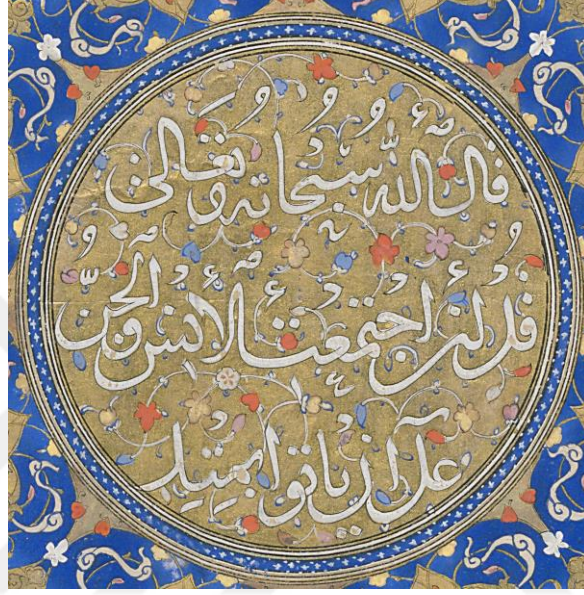 قال الله سبحانه وتعالى
قل لئن اجتمعت الانس والجن
على ان ياتوا بمثل